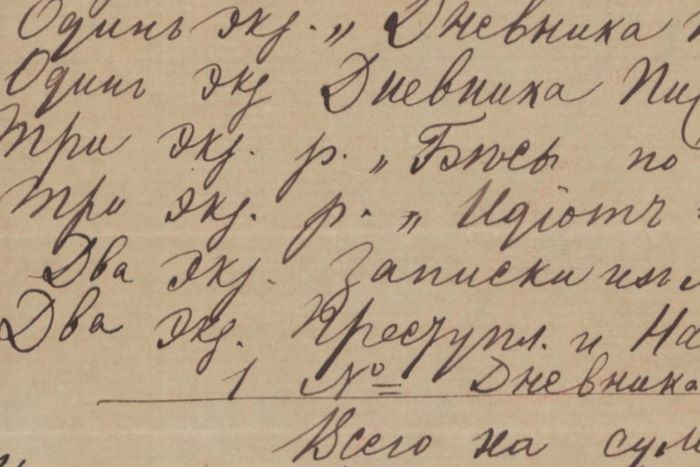 Одинъ экз. „ Дневника
Одинъ экз Дневника Пис
Три экз. р. „ Бѣсы по
Три экз. р. „ Идіотъ
Два экз. Записки изъ
Два экз. Преступл. и На
1 № Дневника
Всего на сум